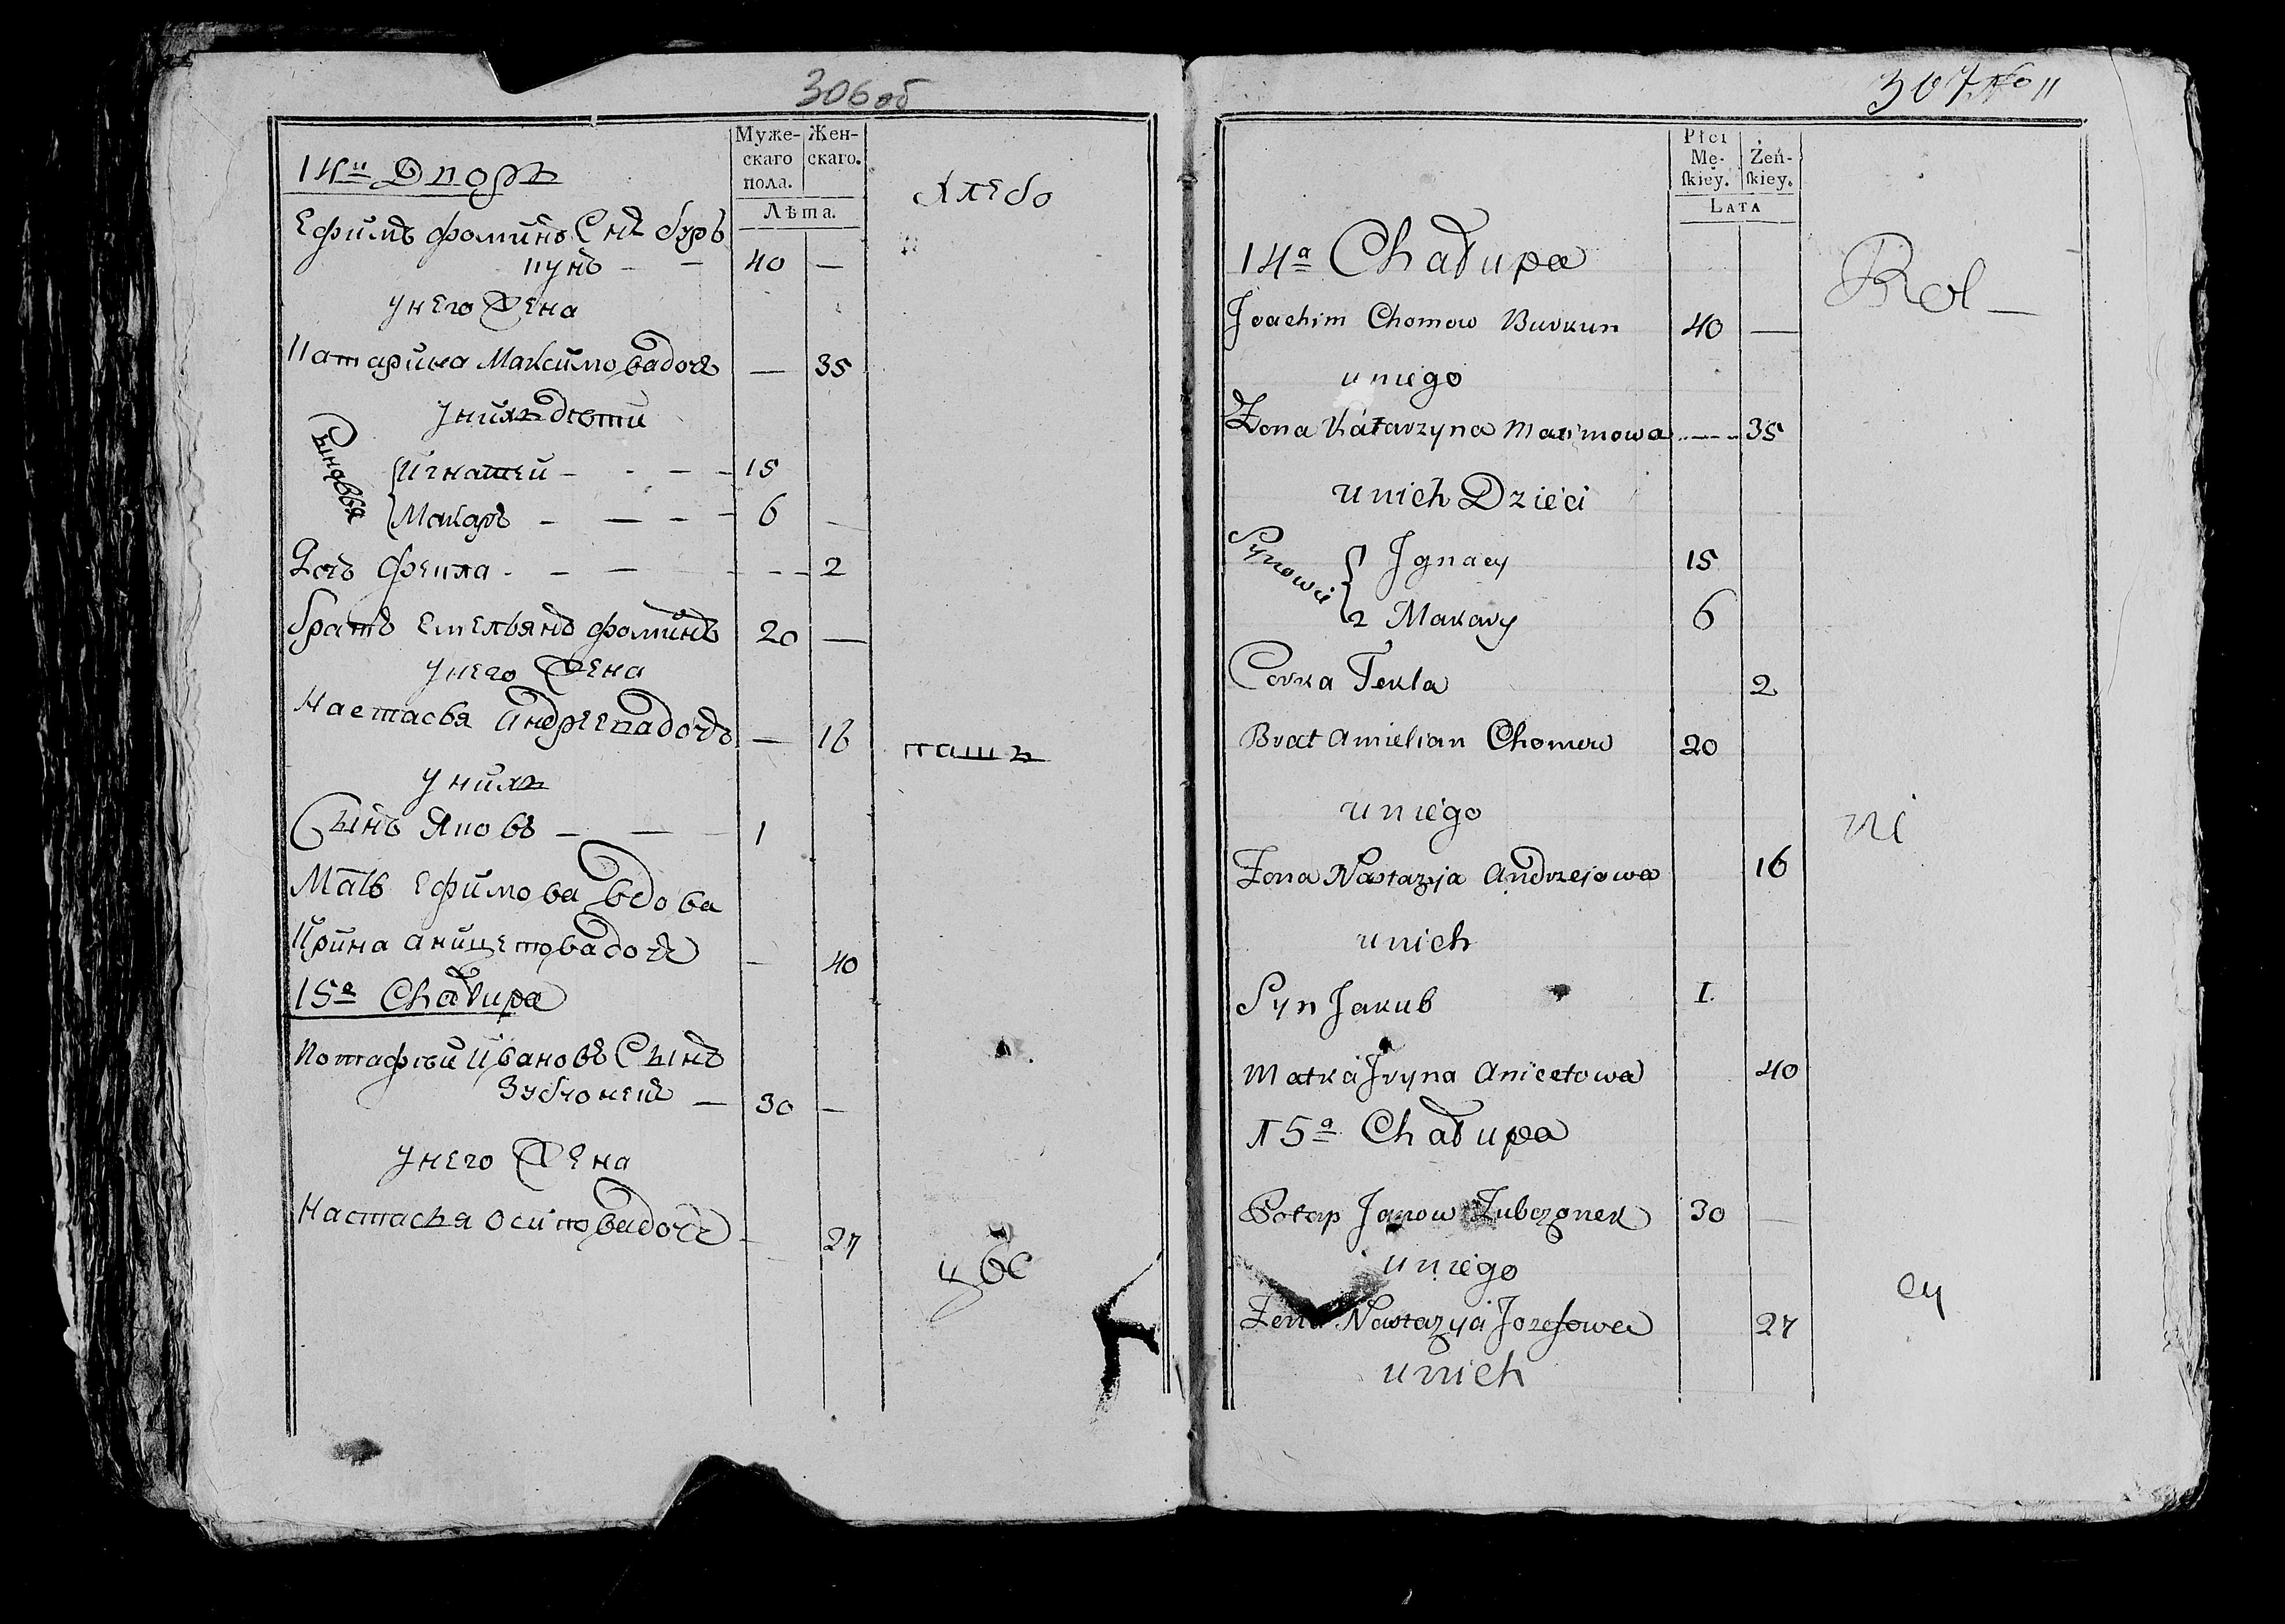 306 об
Муже-
скаго
пола.
Жен-
скаго.
Лѣта.
14й Дворъ
хлебо
Ефимъ Фоминъ Снъ бур
кунъ - - 40 —
у него Жена
Катарина Максимова дочь — 35
у нихъ дѣти
Сыновья
Игнатей - - - - 15
Макаръ - - - - 6 -
Дочь Фекла - - - - - 2
братъ Емельянъ Фоминъ 20 —
у него Жена
Настасья Андреева дочь — 16
пашъ
у нихъ
Сынъ Яковъ - - 1
Мать Ефимова вдова
Ирина аницетова дочь - 40
15a Chałupa
Потафѣй Ивановъ Сынъ
Зубчонекъ — 30 —
у него Жена
Настасья Осипова дочь - 27
цы
307 No 11
Płci
Mę-
ſkiey.
Żeń-
ſkiey.
LATA
14a Chałupa
Rol-
Joachim Chomow Burkun 40 —
u niego
Żona Katarzyna Maximowa --- 35
u nich Dzieci
Synowie
1 Jgnacy 15
2 Makary 6
Corka Tekla 2
Brat Amielian Chomow 20
u niego
ni
Żona Nastazyja Andrzejowa 16
u nich
Syn Jakub 1.
Matka Jryna Anicetowa 40
15a Chałupa
Potap Janow Zubczonek 30 —
u niego
cy
Żona Nastazyja Jozefowa 27
u nich